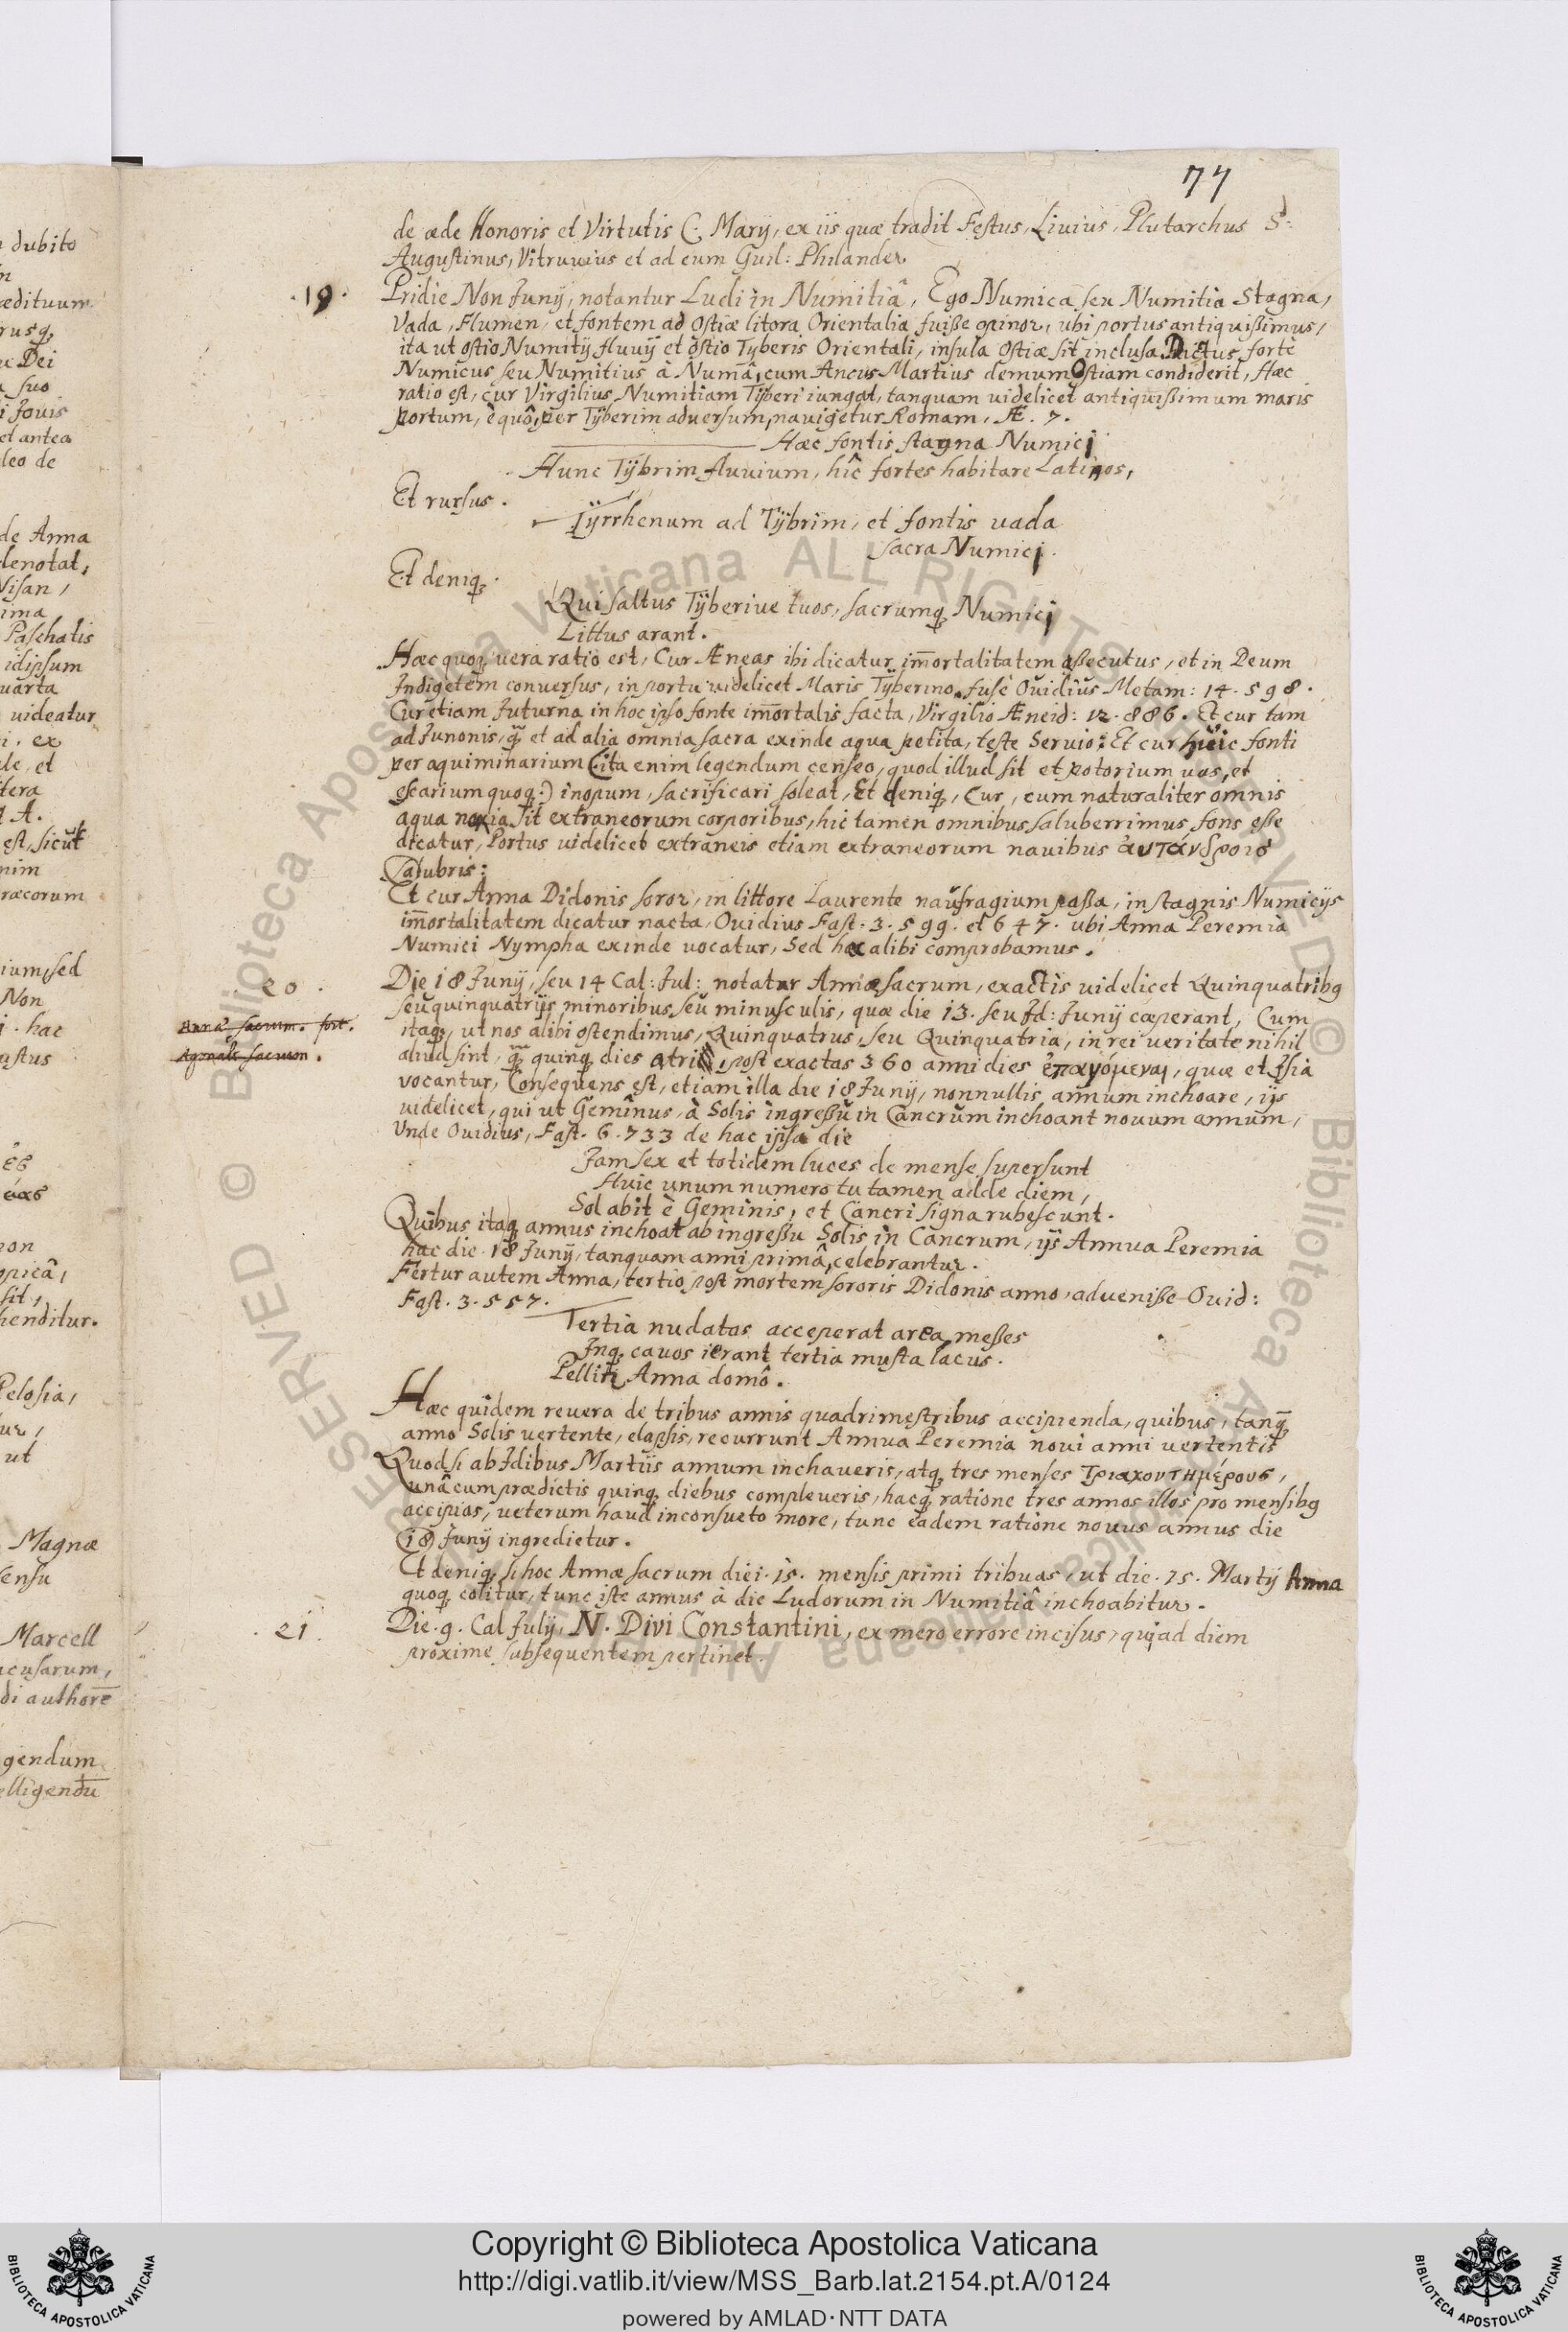 77
de æde Honoris et Virtutis C. Marij, ex iis quæ tradit Festus, Liuius, Plutarchus S:
Augustinus, Vitruuius et ad eum Guil: Philander
.19. Pridie Non Junij, notantur Ludi in Numitiâ, Ego Numica seu Numitia Stagna,
Vada, Flumen, et fontem ad Ostiæ litora Orientalia fuiße opinor, ubi portus antiquißimus,
ita ut ostio Numitij fluuij et ostio Tyberis Orientali, insula Ostiæ sit inclusa. Dictus fortè
Numicus seu Numitius à Numâ, cum Ancus Martius demum Ostiam condiderit, Hæc
ratio est, cur Virgilius Numitiam Tÿberi iungat, tanquam uidelicet antiquißimum maris
portum, è quô, per Tÿberim aduersum, nauigetur Romam, Æ. 7.
Hæc fontis stagna Numici
Hunc Tÿbrim fluuium, hîc fortes habitare Latinos,
Et rursus.
Tÿrrhenum ad Tÿbrim, et fontis uada
sacra Numici.
Et deniq.
Qui saltus Tÿberine tuos, sacrumq Numici
Littus arant.
Hæc quoq uera ratio est, Cur Æneas ibi dicatur immortalitatem aßecutus, et in Deum
Indigetem conuersus, in portu uidelicet Maris Tÿberino. fusè Ouidius Metam: 14. 598.
Cur etiam Juturna in hoc ipso fonte immortalis facta, Virgilio Æneid: 12. 886. Et cur tam
ad Junonis, q̃ et ad alia omnia sacra exinde aqua petita, teste Seruio: Et cur huic fonti
per aquiminarium (ita enim legendum censeo, quod illud sit et potorium uas, et
escarium quoq:) inopum, sacrificari soleat, Et deniq, Cur, cum naturaliter omnis
aqua noxia sit extraneorum corporibus, hic tamen omnibus saluberrimus fons esse
dicatur, Portus uidelicet extraneis etiam extraneorum nauibus ἀυτάνδροις
Salubris:
Et cur Anna Didonis soror, in littore Laurente naufragium paßa, in stagnis Numicijs
immortalitatem dicatur nacta, Ouidius Fast. 3. 599. et 647. ubi Anna Peremia
Numici Nympha exinde uocatur, Sed hæc alibi comprobamus.
20. Die 18 Junij, seu 14 Cal: Jul: notatur Annæ sacrum, exactis uidelicet Quinquatribq
Annæ sacrum. fort.
Agonale sacrum.
seu quinquatrijs minoribus seu minusculis, quæ die 13. seu Id: Junij cæperant, Cum
itaq, ut nos alibi ostendimus, Quinquatrus, seu Quinquatria, in rei ueritate nihil
aliud sint, q̃ quinq dies atri, post exactas 360 anni dies ἐπαγόμεναι, quæ et Isia
vocantur, Consequens est, etiam illa die 18 Junij, nonnullis annum inchoare, ijs
uidelicet, qui ut Geminus, à Solis ingreßu in Cancrum inchoant nouum annum,
Unde Ouidius, Fast. 6. 733 de hac ipsa die
Jam sex et totidem luces de mense supersunt
Huic unum numero tu tamen adde diem,
Sol abit è Geminis, et Cancri signa rubescunt.
Quibus itaq annus inchoat ab ingreßu Solis in Cancrum, ijs Annua Peremia
hac die. 18 Junij, tanquam anni primâ, celebrantur.
Fertur autem Anna, tertio post mortem sororis Didonis anno, adueniße Ouid:
Fast. 3. 557.
Tertia nudatas acceperat area meßes
Inq cauos ierant tertia musta lacus.
Pellitr Anna domô.
Hæc quidem reuera de tribus annis quadrimestribus accipienda, quibus, tanq̃
anno Solis uertente, elapsis, recurrunt Annua Peremia noui anni uertentis
Quod si ab Idibus Martiis annum inchaueris, atq tres menses τριακοντημέρους,
unâ cum prædictis quinq diebus compleueris, hacq ratione tres annos illos pro mensibq
accipias, ueterum haud inconsueto more, tunc eadem ratione nouus annus die
(18) Junij ingredietur.
Et deniq, si hoc Annæ sacrum diei. 15. mensis primi tribuas, ut die. 15. Martij Anna
quoq colitur, tunc iste annus à die Ludorum in Numitiâ inchoabitur.
.21. Die. 9. Cal Julij, N. Divi Constantini, ex mero errore incisus, qui ad diem
proxime subsequentem pertinet.
Copyright © Biblioteca Apostolica Vaticana
http://digi.vatlib.it/view/MSS_Barb.lat.2154.pt.A/0124
powered by AMLAD·NTT DATA